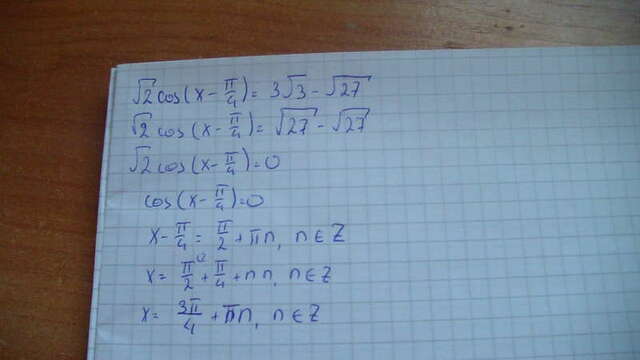 √2 cos(x - π/4) = 3√3 - √27
√2 cos(x - π/4) = √27 - √27
√2 cos(x - π/4) = 0
cos(x - π/4) = 0
x - π/4 = π/2 + πn, n ∈ Z
x = π/2 + π/4 + πn, n ∈ Z
x = 3π/4 + πn, n ∈ Z